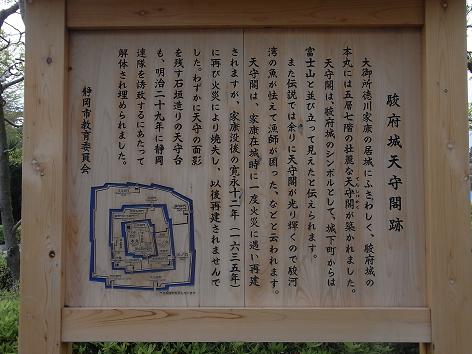 駿府城天守閣跡
大御所徳川家康の居城にふさわしく、駿府城の
本丸には五層七階の壮麗な天守閣が築かれました。
天守閣は、駿府城のシンボルとして、城下町からは
富士山と並び立って見えたと伝えられます。
また伝説では余りに天守閣が光り輝くので駿河
湾の魚が怯えて漁師が困った、などと云われます。
天守閣は、家康在城時に一度火災に遇い再建
されますが、家康没後の寛永十二年(一六三五年)
に再び火災により焼失し、以後再建されませんで
した。わずかに天守の面影
を残す石垣造りの天守台
も、明治二十九年に静岡
連隊を誘致するにあたって
解体され埋められました。
静岡市教育委員会